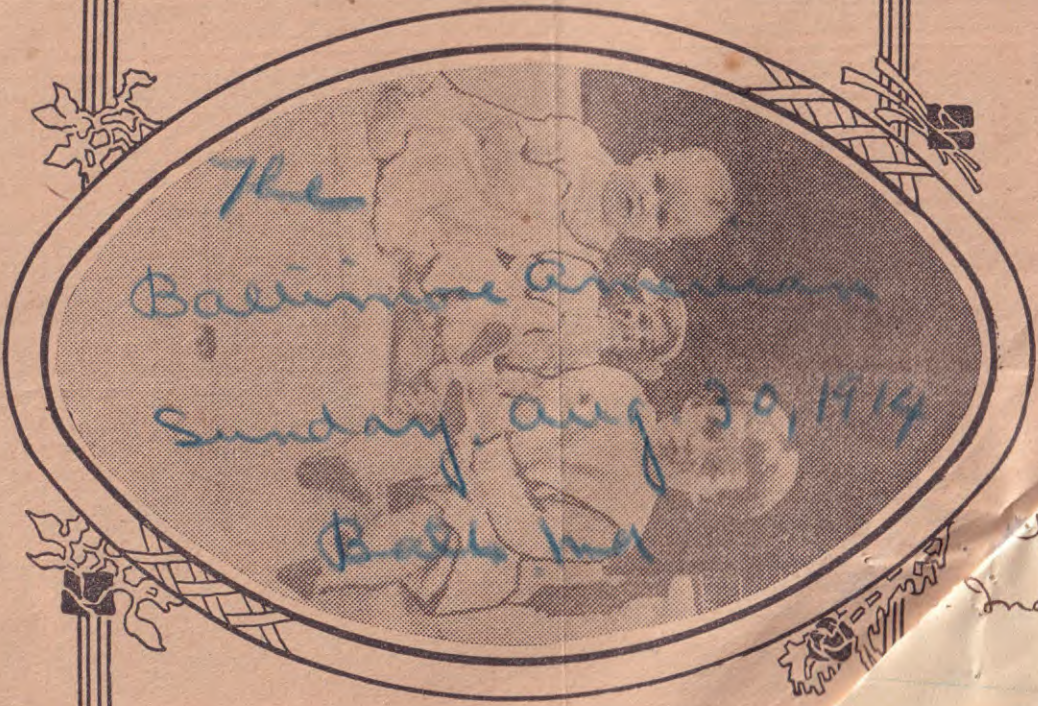 The
Baltimore American
Sunday, Aug 30, 1914
Balto. Md